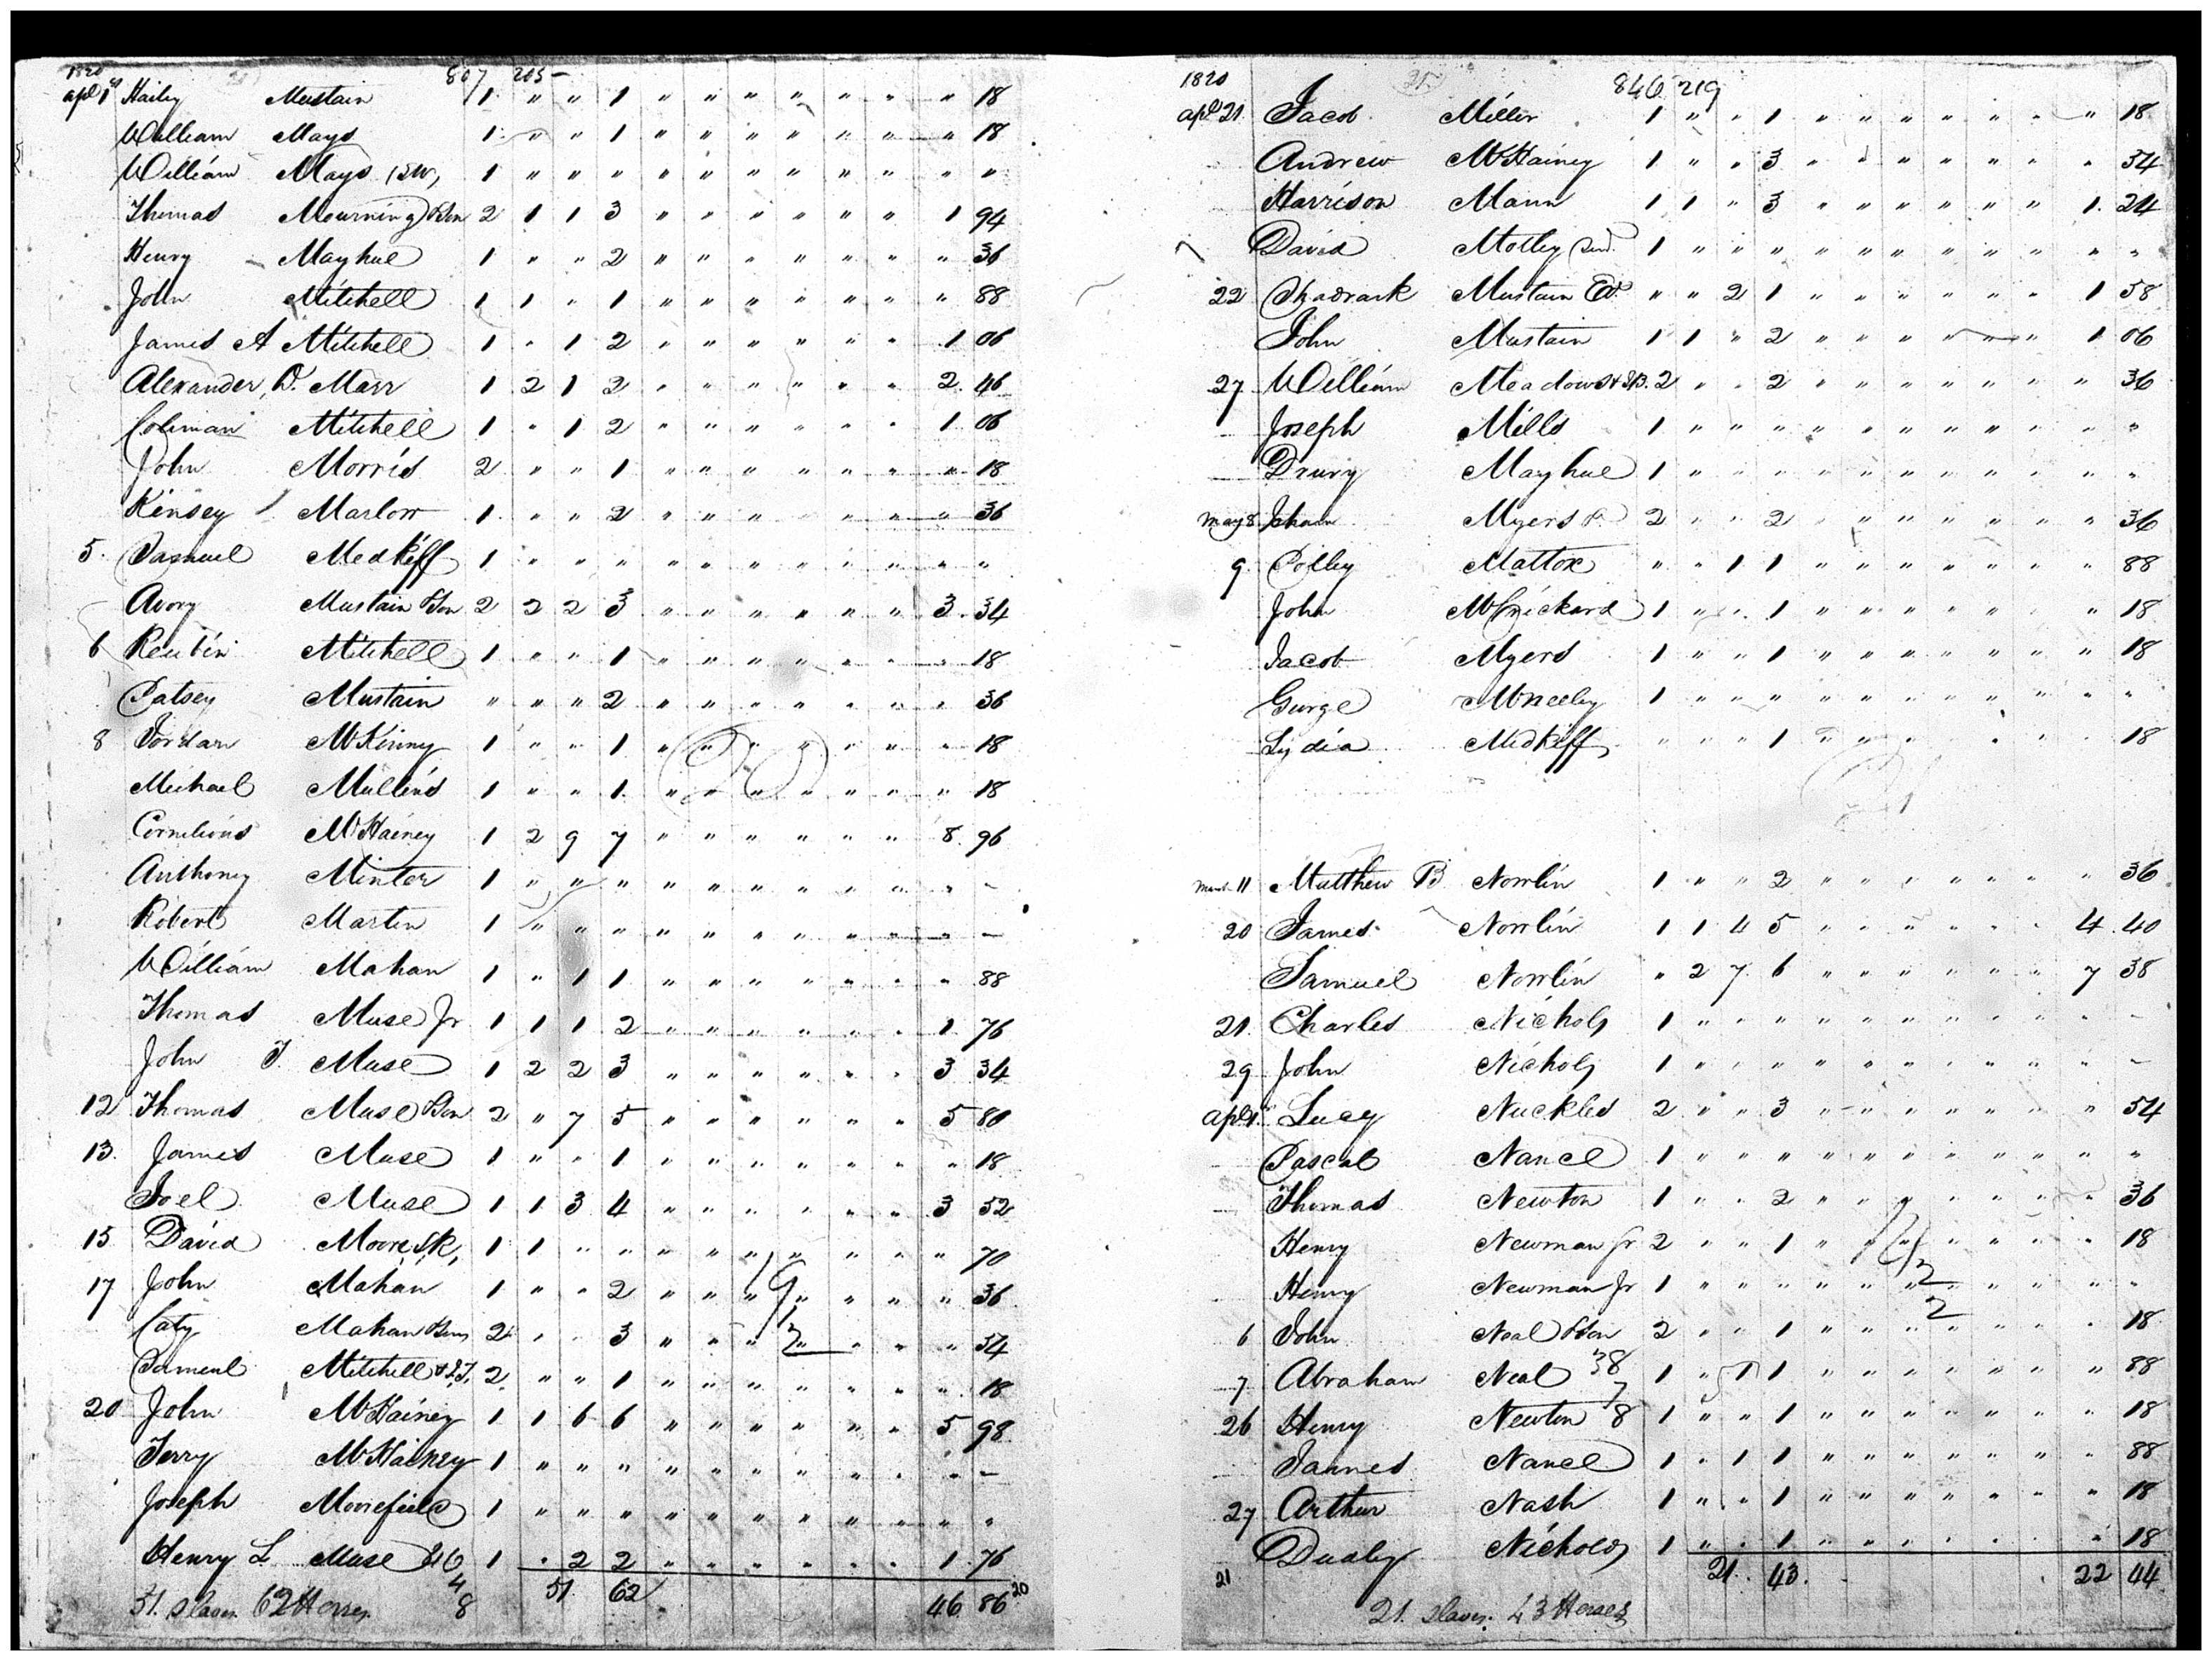 1820 807 205 –
apl 1st Hailey Mustain 1 " " 1 " " " " " " " 18
William Mays 1 " " 1 " " " " " " " 18
William Mays (SW) 1 " " " " " " " " " " "
Thomas Mourning & Son 2 1 1 3 " " " " " " 1 94
Henry Mayhue 1 " " 2 " " " " " " " 36
John Mitchell 1 1 " 1 " " " " " " " 88
James A Mitchell 1 " 1 2 " " " " " " 1 06
Alexander D. Marr 1 2 1 2 " " " " " " 2. 46
Coleman Mitchell 1 " 1 2 " " " " " " 1 06
John Morris 2 " " 1 " " " " " " " 18
Kinsey Marlow 1 " " 2 " " " " " " " 36
5. Samuel Medkiff 1 " " " " " " " " " " "
Avory Mustain & Son 2 2 2 3 " " " " " " 3. 34
6 Reubin Mitchell 1 " " 1 " " " " " " " 18
Patsey Mustain " " " 2 " " " " " " " 36
8 Jordan McKinny 1 " " 1 " " " " " " " 18
Michael Mullins 1 " " 1 " " " " " " " 18
Cornelious McHainey 1 2 9 7 " " " " " " 8. 96
Anthoney Minter 1 " " " " " " " " " " –
Robert Martin 1 " " " " " " " " " " –
William Mahan 1 " 1 1 " " " " " " " 88
Thomas Muse Jr 1 1 1 2 " " " " " " 1 76
John T. Muse 1 2 2 3 " " " " " " 3 34
12 Thomas Muse & Son 2 " 7 5 " " " " " " 5 80
13. James Muse 1 " " 1 " " " " " " " 18
Joel Muse 1 1 3 4 " " " " " " 3 52
15 David Moore SR, 1 1 " " " " " " " " " 70
17 John Mahan 1 " " 2 " " " " " " " 36
Caty Mahan & Sons 2 " " 3 " " " " " " " 54
Samuel Mitchell & S.T. 2 " " 1 " " " " " " " 18
20 John McHainey 1 1 6 6 " " " " " " 5 98
Terry McHainey 1 " " " " " " " " " " –
Joseph Moorefield 1 " " " " " " " " " " "
Henry L Muse 1 " 2 2 " " " " " " 1 76
51 62 46 86
51. slaves 62 Horses
1820 846 219
apl 21 Jacob Miller 1 " " 1 " " " " " " " 18
Andrew McHainey 1 " " 3 " " " " " " " 34
Harrison Mann 1 1 " 3 " " " " " " 1. 24
David Motley 1 " " " " " " " " " " "
22 Shadrack Mustain Est. " " 2 1 " " " " " " 1 58
John Mustain 1 1 " 2 " " " " " " 1 06
27 William Meadows & SB. 2 " " 2 " " " " " " " 36
Joseph Mills 1 " " " " " " " " " " "
Drury Mayhue 1 " " " " " " " " " " "
May 8 Myers 2 " " 2 " " " " " " " 36
9 Polley Mattox " " 1 1 " " " " " " " 88
John 1 " " 1 " " " " " " " 18
Jacob Myers 1 " " 1 " " " " " " " 18
Gurge McNeeley 1 " " " " " " " " " " "
Lydia Medkiff " " " 1 " " " " " " " 18
March 11 Matthew B Nowlin 1 " " 2 " " " " " " " 36
20 James Nowlin 1 1 4 5 " " " " " " 4 40
Samuel Nowlin " 2 7 6 " " " " " " 7 38
21. Charles Nichols 1 " " " " " " " " " " –
29 John Nichols 1 " " " " " " " " " " –
Apl 1st Lucy Nuckles 2 " " 3 " " " " " " " 54
Pascal Nance 1 " " " " " " " " " " "
Thomas Newton 1 " " 2 " " " " " " " 36
Henry Newman Jr 2 " " 1 " " " " " " " 18
Henry Newman Jr 1 " " " " " " " " " " "
6 John Neal & Son 2 " " 1 " " " " " " " 18
7 Abraham Neal 38 1 " 1 1 " " " " " " " 88
7
26 Henry Newton 8 1 " " 1 " " " " " " " 18
James Nance 1 " 1 1 " " " " " " " 88
27 Arthur Nash 1 " " 1 " " " " " " " 18
Nichols 1 " " 1 " " " " " " " 18
21 21. 43. 22 44
21. slaves. 43 Horses